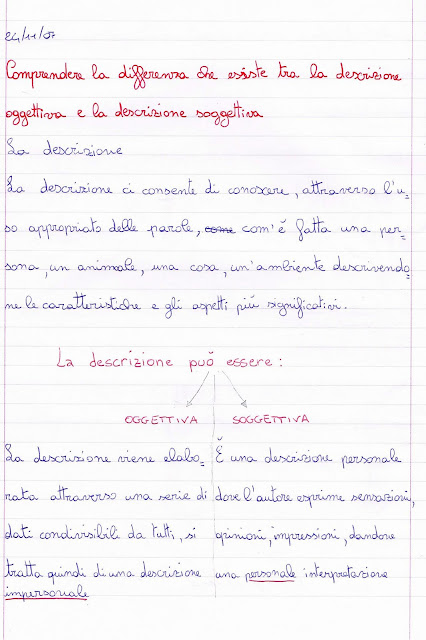 24/11/07
Comprendere la differenza che esiste tra la descrizione
oggettiva e la descrizione soggettiva
La descrizione
La descrizione ci consente di conoscere, attraverso l'u=
so appropriato delle parole, come com'è fatta una per=
sona, un animale, una cosa, un'ambiente descrivendo=
ne le caratteristiche e gli aspetti più significativi.
La descrizione può essere:
OGGETTIVA
SOGGETTIVA
La descrizione viene elabo=
rata attraverso una serie di
dati condivisibili da tutti, si
tratta quindi di una descrizione
impersonale
È una descrizione personale
dove l'autore esprime sensazioni,
opinioni, impressioni, dandone
una personale interpretazione